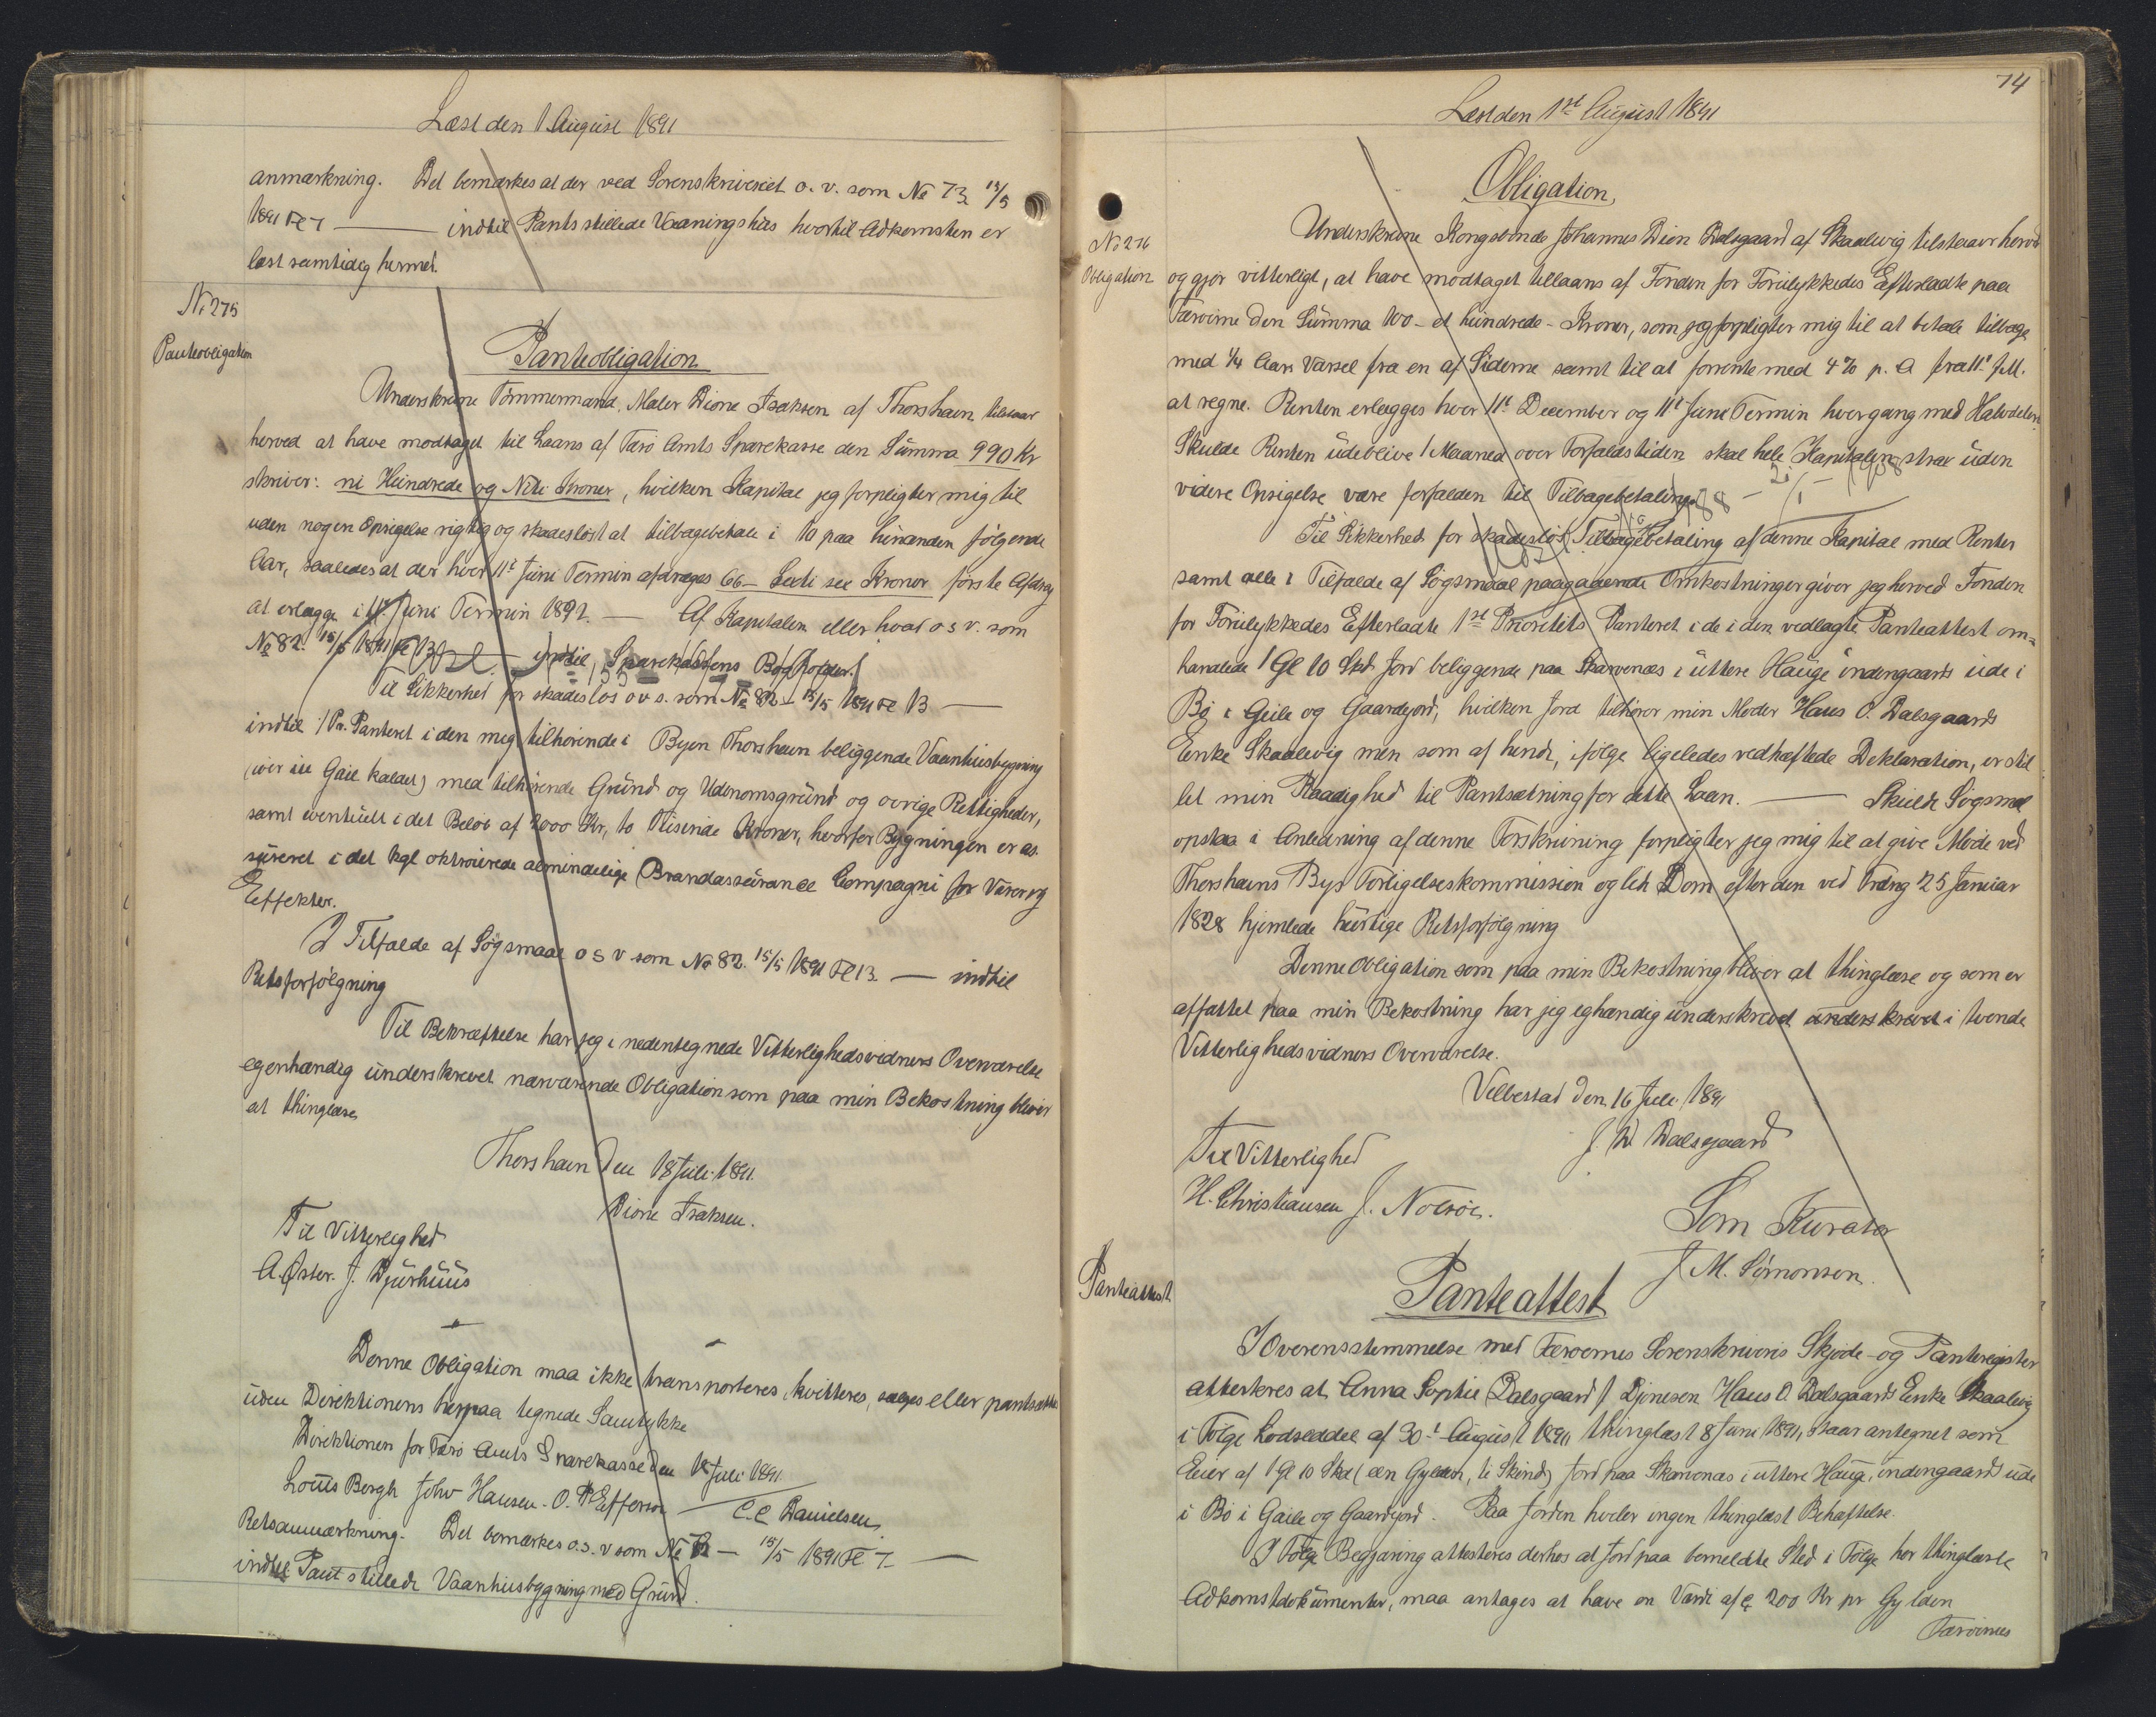 Læst den 1 August 1891
anmærkning. Det bemærkes at der ved Sorenskriveriet o. v. som No 73 15/5
1891 Fl 7 — indtil Pants stillede Vaaningshus hvortil Adkomsten er
læst samtidig hermed.
No 275
Panteobligation
Panteobligation
Underskrevne Tømmermand, Maler Dione Isaksen af Thorshavn tilstaar
herved at have modtaget til Laans af Færø Amts Sparekasse den Summa 990 Kr
skriver: ni Hundrede og Niti Kroner, hvilken Kapital jeg forpligter mig til
uden nogen Opsigelse rigtig og skadesløst at tilbagebetale i 10 paa hinanden følgende
Aar, saaledes at der hver 11te Juni Termin afdrages 66 – Sexti sex Kroner første Afdrag
at erlægge i 11te Juni Termin 1892. — Af Kapitalen eller hvad o s v. som
No 82. 15/5 1891 Fl 13 — indtil, Sparekassens Bogholder.
Til Sikkerhed for skadesløs o v s. som No 82 – 15/5 1891 Fl 13 —
indtil 1 Pr. Panteret i den mig tilhørende i Byen Thorshavn beliggende Vaanhusbygning
(wir iu Gail kaldet) med tilhørende Grund og Udenomsgrund og øvrige Rettigheder,
samt eventuelt i det Beløb af 2000 Kr, to Tusinde Kroner, hvorfor Bygningen er as-
sureret i det kgl oktroierede almindelige Brandassurance Compagni for Varer og
Effekter.
I Tilfælde af Søgsmaal o s v som No 82. 15/5 1891 Fl 13. — indtil
Retsforfølgning
Til Bekræftelse har jeg i nedentegnede Vitterlighedsvidners Overværelse
egenhændig underskrevet nærværende Obligation som paa min Bekostning bliver
at thinglæse
Thorshavn den 18 Juli 1891.
Dione Isaksen.
Til Vitterlighed
A. Øster. J. Djurhuus
Denne Obligation maa ikke transporteres, kvitteres, sælges eller pantsættes
uden Direktionens herpaa tegnede Samtykke
Direktionen for Færø Amts Sparekasse den 18 Juli 1891.
Louis Bergh John Hansen. O. P. Effersøe C. C. Danielsen.
Retsanmærkning. Det bemærkes o. s. v som No 73 — 15/5 1891 Fl 7 —
indtil Pant stillede Vaanhusbygning med Grund.
74
Læst den 1ste August 1891
No 276
Obligation
Obligation
Underskrevne Kongsbonde Johannes Dion Dalsgaard af Skaalevig tilstaaer herved
og gjør vitterligt, at have modtaget tillaans af Fonden for Forulykkedes Efterladte paa
Færøerne den Summa 100 – et hundrede – Kroner, som jeg forpligter mig til at betale tilbage
med 1/4 Aars Varsel fra en af Siderne samt til at forrente med 4 % p. A fra 11te f. M.
at regne. Renten erlægges hver 11te December og 11te Juni Termin hvergang med Halvdelen.
Skulde Renten udeblive 1 Maaned over Forfaldstiden skal hele Kapitalen strax uden
videre Opsigelse være forfalden til Tilbagebetaling.
Til Sikkerhed for skadesløs Tilbagebetaling af denne Kapital med Renter
samt alle i Tilfælde af Søgsmaal paagaaende Omkostninger giver jeg herved Fonden
for Forulykkedes Efterladte 1ste Prioritets Panteret i de i den vedlagte Panteattest om=
handlede 1 Gl 10 Skd Jord beliggende paa Skarvenæs i uttere Hauge indengaards ude i
Bø i Geile og Gaardejord, hvilken Jord tilhører min Moder Hans O. Dalsgaards
Enke Skaalevig men som af hende, ifølge ligeledes vedhæftede Deklaration, er stil
let min Raadighed til Pantsætning for dette Laan. — Skulde Søgsmaal
opstaa i Anledning af denne Forskrivning forpligter jeg mig til at give Møde ved
Thorshavns Byes Forligelseskommission og lide Dom efter den ved Frdng 25 Januar
1828 hjemlede hurtige Retsforfølgning
Denne Obligation som paa min Bekostning bliver at thinglæse og som er
affattet paa min Bekostning har jeg eghændig underskrevet underskrevet i tvende
Vitterlighedsvidners Overværelse.
Velbestad den 16 Juli 1891
J. D Dalsgaard
Til Vitterlighed
H. Christiansen J. Nolsøe.
Som Kurator
J. M. Simonsen.
Panteattest
Panteattest
I Overensstemmelse med Færøernes Sorenskriveris Skjøde- og Panteregister
attesteres at Anna Sophie Dalsgaard f. Djonesen Hans O. Dalsgaards Enke Skaalevig
i Følge Lodseddel af 30te August 1890, thinglæst 8 Juni 1891, staar antegnet som
Eier af 1 Gl 10 Skd (een Gylden, ti Skind) Jord paa Skarvenæs i uttere Hauge, indengaards ude
i Bø i Gaile og Gaardejord. Paa Jorden hviler ingen thinglæst Behæftelse.
I Følge Begjæring attesteres derhos at Jord paa bemeldte Sted i Følge her thinglæste
Adkomstdokumenter, maa antages at have en Værdi af c 200 Kr pr Gylden
Færøernes